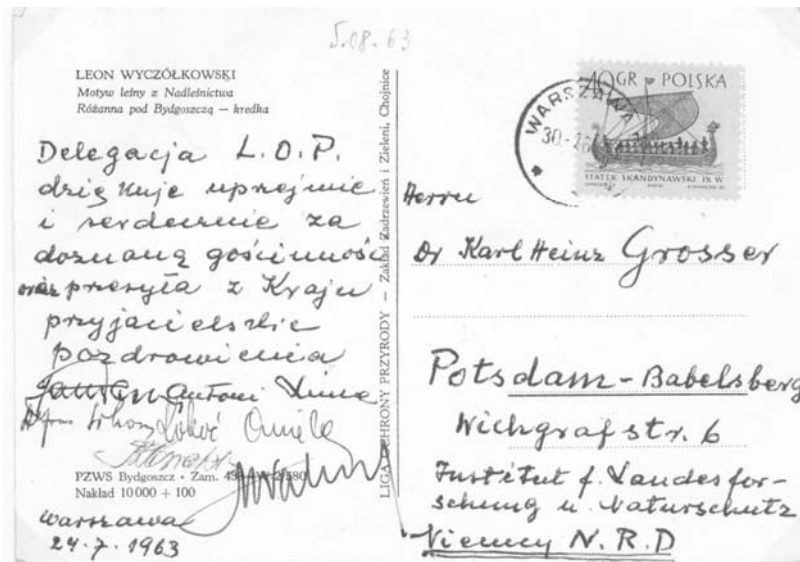 5.08.63
LEON WYCZÓŁKOWSKI
Motyw leśny z Nadleśnictwa
Różanna pod Bydgoszczą — kredka
Delegacja L.O.P.
dziękuje uprzejmie
i serdecznie za
doznaną gościnność
oraz przesyła z Kraju
przyjacielskie
pozdrowienia
Antoni
PZWS Bydgoszcz • Zam.
Nakład 10 000 + 100
Warszawa
24.7.1963
LIGA OCHRONY PRZYRODY — Zakład Zadrzewień i Zieleni, Chojnice
40 GR POLSKA
WARSZAWA
30.
STATEK SKANDYNAWSKI IX W
Herrn
Dr Karl Heinz Grosser
Potsdam-Babelsberg
Wichgrafstr. 6
Institut f. Landesfor-
schung u. Naturschutz
Niemcy N.R.D